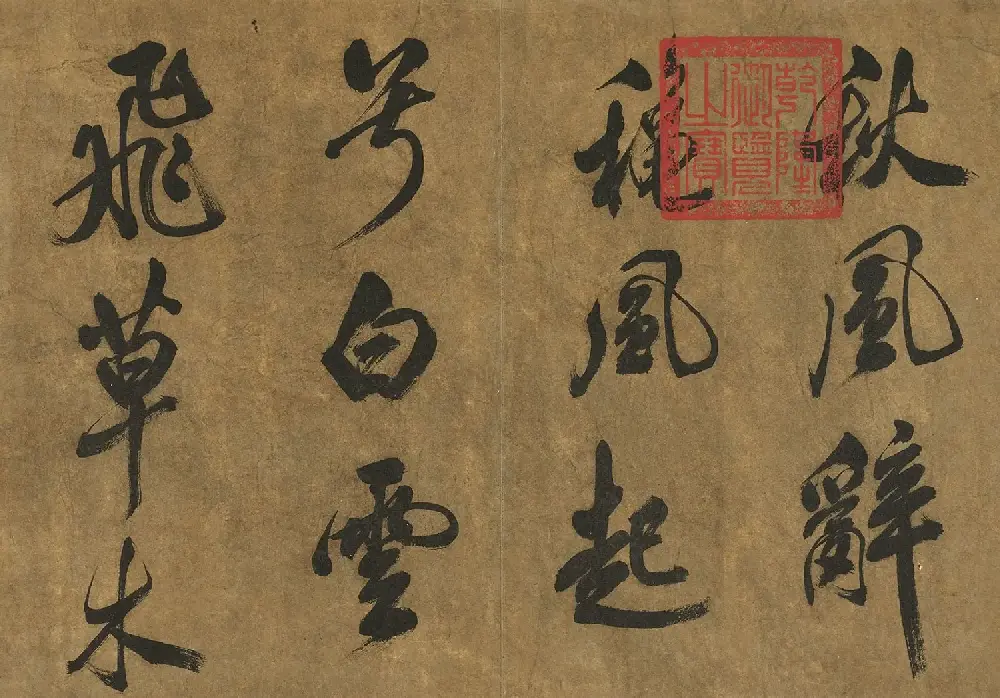 秋風辭
穐風起
兮白雲
飛草木
乾隆
御覽
之寶